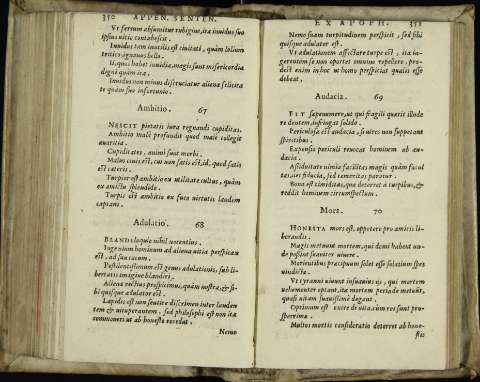 350 APPEN. SENTEN.
Vt ferrum absumitur rubigine, ita inuidus suo
ipsius vitio contabescit.
Inuidus tam inutilis est ciuitati, quàm lolium
tritico, ignauus bello.
Ii, quos habet inuidia, magis sunt misericordia
digni quàm ira.
Inuidus non minus discruciatur aliena felicita
te quàm suo infortunio.
Ambitio. 67
NESCIT pietatis iura regnandi cupiditas.
Ambitio malè profundit quod malè collegit
auaritia.
Cupiditates, animi sunt morbi.
Malus ciuis est, cui non satis est, id, quod satis
est cæteris.
Turpior est ambitio ex vtilitate cultus, quàm
ex amictu splendido.
Turpis est ambitio ex futa virtutis laudem
capiens.
Adulatio. 68
BLANDiloquis nihil nocentius.
Ingenium hominum ad aliena vitia perspicax
est, ad sua cæcum.
Pestilentissimum est genus adulationis, sub li-
bertatis imagine blandiri,
Aliena rectius prospicimus, quàm nostra, & si-
bi quisque adulator est.
Lapidis est non sentire discrimen inter laudan
tem & vituperantem, sed philosophi est non ita
commoueri vt ab honesto recedat.
Nemo
EX APOPH. 351
Nemo suam turpitudinem perspicit, sed sibi
quisque adulator est.
Vt adulationem affectare turpe est, ita in-
gerentem se non oportet omnino repellere, pro-
dest enim in hoc vt homo perspiciat qualis esse
debeat.
Audacia. 69
FIT sæpenumero, vt qui fragili quærit illude
re dentem, infringat solido.
Periculosa est audacia, si vires non suppetant
spiritibus.
Expensio periculi reuocat hominem ab au-
dacia.
Assiduitate nimia facilitas magis quàm facul
tas, nec fiducia, sed temeritas paratur.
Bona est timiditas, quæ deterret à turpibus, &
reddit hominem circumspectum.
Mors. 70
HONESTA mors est, oppetere pro amicis li-
berandis.
Magis metuunt mortem, qui domi habent vn-
de possint suauiter viuere.
Morientibus præcipuum solet esse solatium spes
vindictæ.
Vt tyranni viuunt inuisi vi, qui mortem
vehementer optant, ita mortem perinde metuũt,
quasi vitam suauissimè degant.
Optimum est exire de vita, cum res sunt pro-
sperrimæ.
Multos mortis consideratio deterret ab hone-
stis